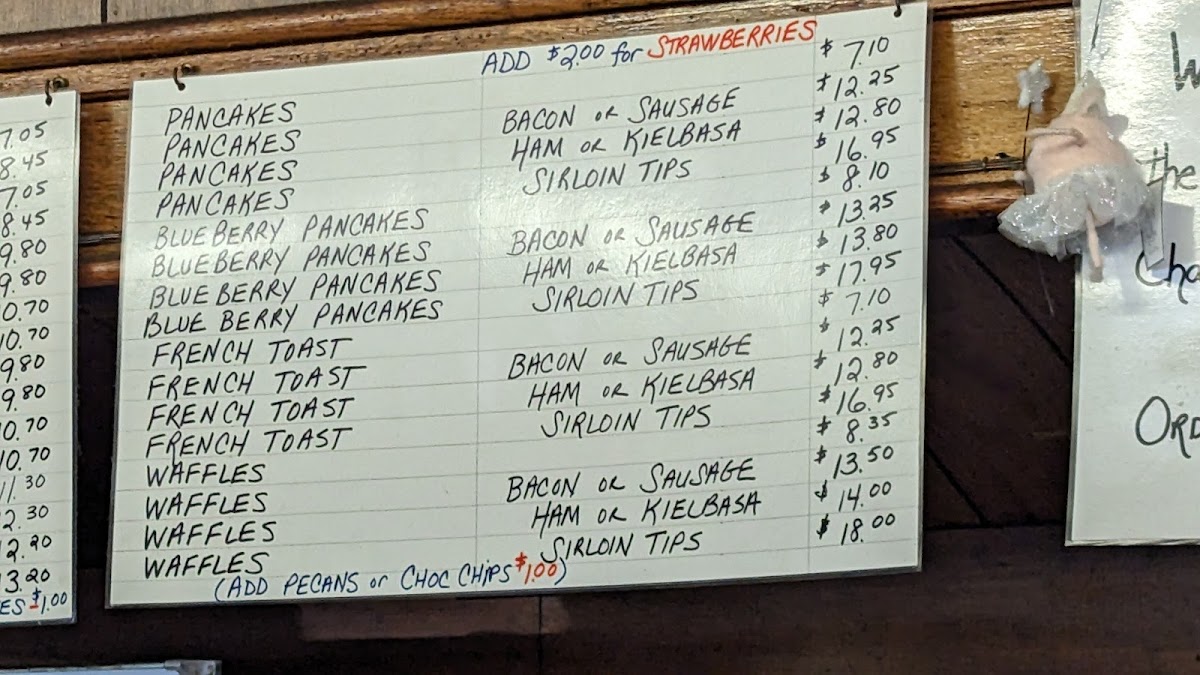 7.05
8.45
7.05
8.45
9.80
9.80
0.70
10.70
9.80
9.80
10.70
10.70
11.30
2.30
2.20
3.20
ES $1.00
ADD $2.00 for STRAWBERRIES
PANCAKES $ 7.10
PANCAKES BACON OR SAUSAGE $ 12.25
PANCAKES HAM OR KIELBASA $ 12.80
PANCAKES SIRLOIN TIPS $ 16.95
BLUEBERRY PANCAKES $ 8.10
BLUEBERRY PANCAKES BACON OR SAUSAGE $ 13.25
BLUEBERRY PANCAKES HAM OR KIELBASA $ 13.80
BLUE BERRY PANCAKES SIRLOIN TIPS $ 17.95
FRENCH TOAST $ 7.10
FRENCH TOAST BACON OR SAUSAGE $ 12.25
FRENCH TOAST HAM OR KIELBASA $ 12.80
FRENCH TOAST SIRLOIN TIPS $ 16.95
WAFFLES $ 8.35
WAFFLES BACON OR SAUSAGE $ 13.50
WAFFLES HAM OR KIELBASA $ 14.00
WAFFLES SIRLOIN TIPS $ 18.00
(ADD PECANS or CHOC CHIPS $1.00)
W
the
Cha
ORD